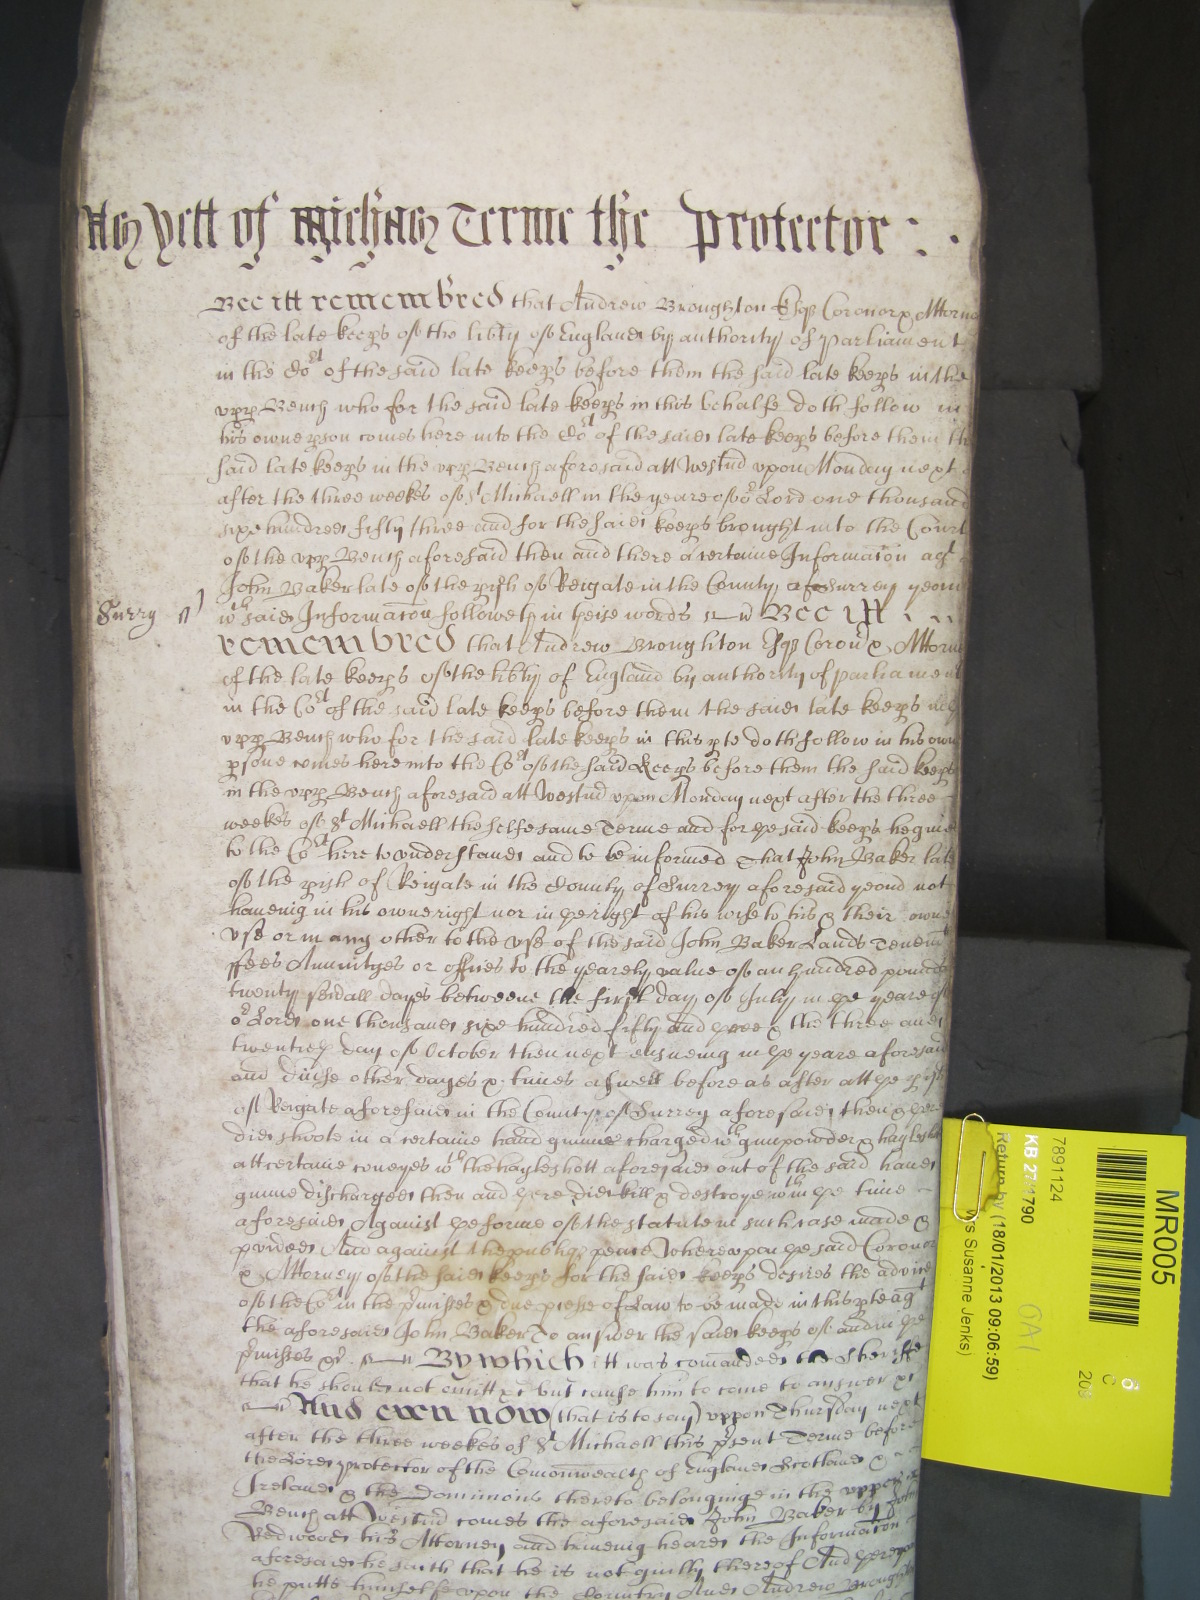 As yett of Michas Terme the Protector
Bee itt remembred that Andrew Broughton Esqr Coronor & Attorn
of the late keeps of the libty of England by authority of parliament
in the Cot of the said late keeps before them the said late keeps in the
upp Bench who for the said late keeps in this behalfe doth follow in
his owne pson comes here into the Cot of the said late keeps before them th
said late keeps in the upp Bench aforesaid att Westm upon Monday next
after the three weekes of St Michaell in the yeare of or Lord one thousand
sixe hundred fifty three and for the said keeps brought into the Court
of the upp Bench aforesaid then and there a certaine Informacon agt
John Baker late of the pish of Reigate in the County of Surrey yeom
Surry
wch said Informacon followeth in theise words Bee itt
remembred that Andrew Broughton Esqr Coron & Attorn
of the late keeps of the libty of England by authority of parliament
in the Cot of the said late keeps before them the said late keeps in the
upp Bench who for the said late keeps in this pte doth follow in his own
psone comes here into the Cot of the said keeps before them the said keeps
in the upp Bench aforesaid att Westm upon Monday next after the three
weekes of St Michaell the selfe same Terme and for the said keeps
to the Cot here to understand and to be informed that John Baker late
of the pish of Reigate in the County of Surrey aforesaid yeom not
haveing in his owne right nor in the right of his wife to his & their owne
use or in any other to the use of the said John Baker Lands Tenemt
ffees Annuityes or offices to the yearely value of an hundred pounds
twenty sevall dayes betweene the first day of July in the yeare of
or Lord one thousand sixe hundred fifty and three & the three and
twentieth day of October then next ensueing in the yeare aforesaid
and divse other dayes & times aswell before as after att the pish
of Reigate aforesaid in the County of Surrey aforesaid then & there
did shoote in a certaine hand gunne charged wth gunpowder & hayleshott
att certaine coneyes wth the hayleshott aforesaid out of the said hand
gunne discharged then and there did kill & destroye wthin the time
aforesaid Against the forme of the statute in such case made &
pvided And against the publiq peace Whereupon the said Coronor
& Attorney of the said keeps for the said keeps desires the advice
of the Cot in the pmisses & due pcesse of Law to be made in this pte agt
the aforesaid John Baker To answer the said keeps of and in the
pmisses &c. By which itt was comanded the Sheriffe
that he should not omitt &c but cause him to come to answer &c
And even now (that is to say) uppon Thursday next
after the three weekes of St Michaell this psent Terme before
the Lord protector of the Comonwealth of England Scotland &
Ireland & the Dominions thereto belonginge in the upper
Bench att Westm comes the aforesaid John Baker by John
Redwood his Attorney and haveing heard the Informacon
aforesaid he saith that he is not guilty thereof And thereupon
he putts himselfe upon the Country And Andrew Broughton
MR005
7891124
KB 27/1790
Return by (18/01/2013 09:06:59)
s Susanne Jenks)
GA1
6
C